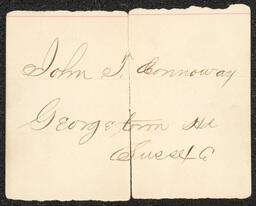 John T. Connoway
Georgetown Del
Sussex Co